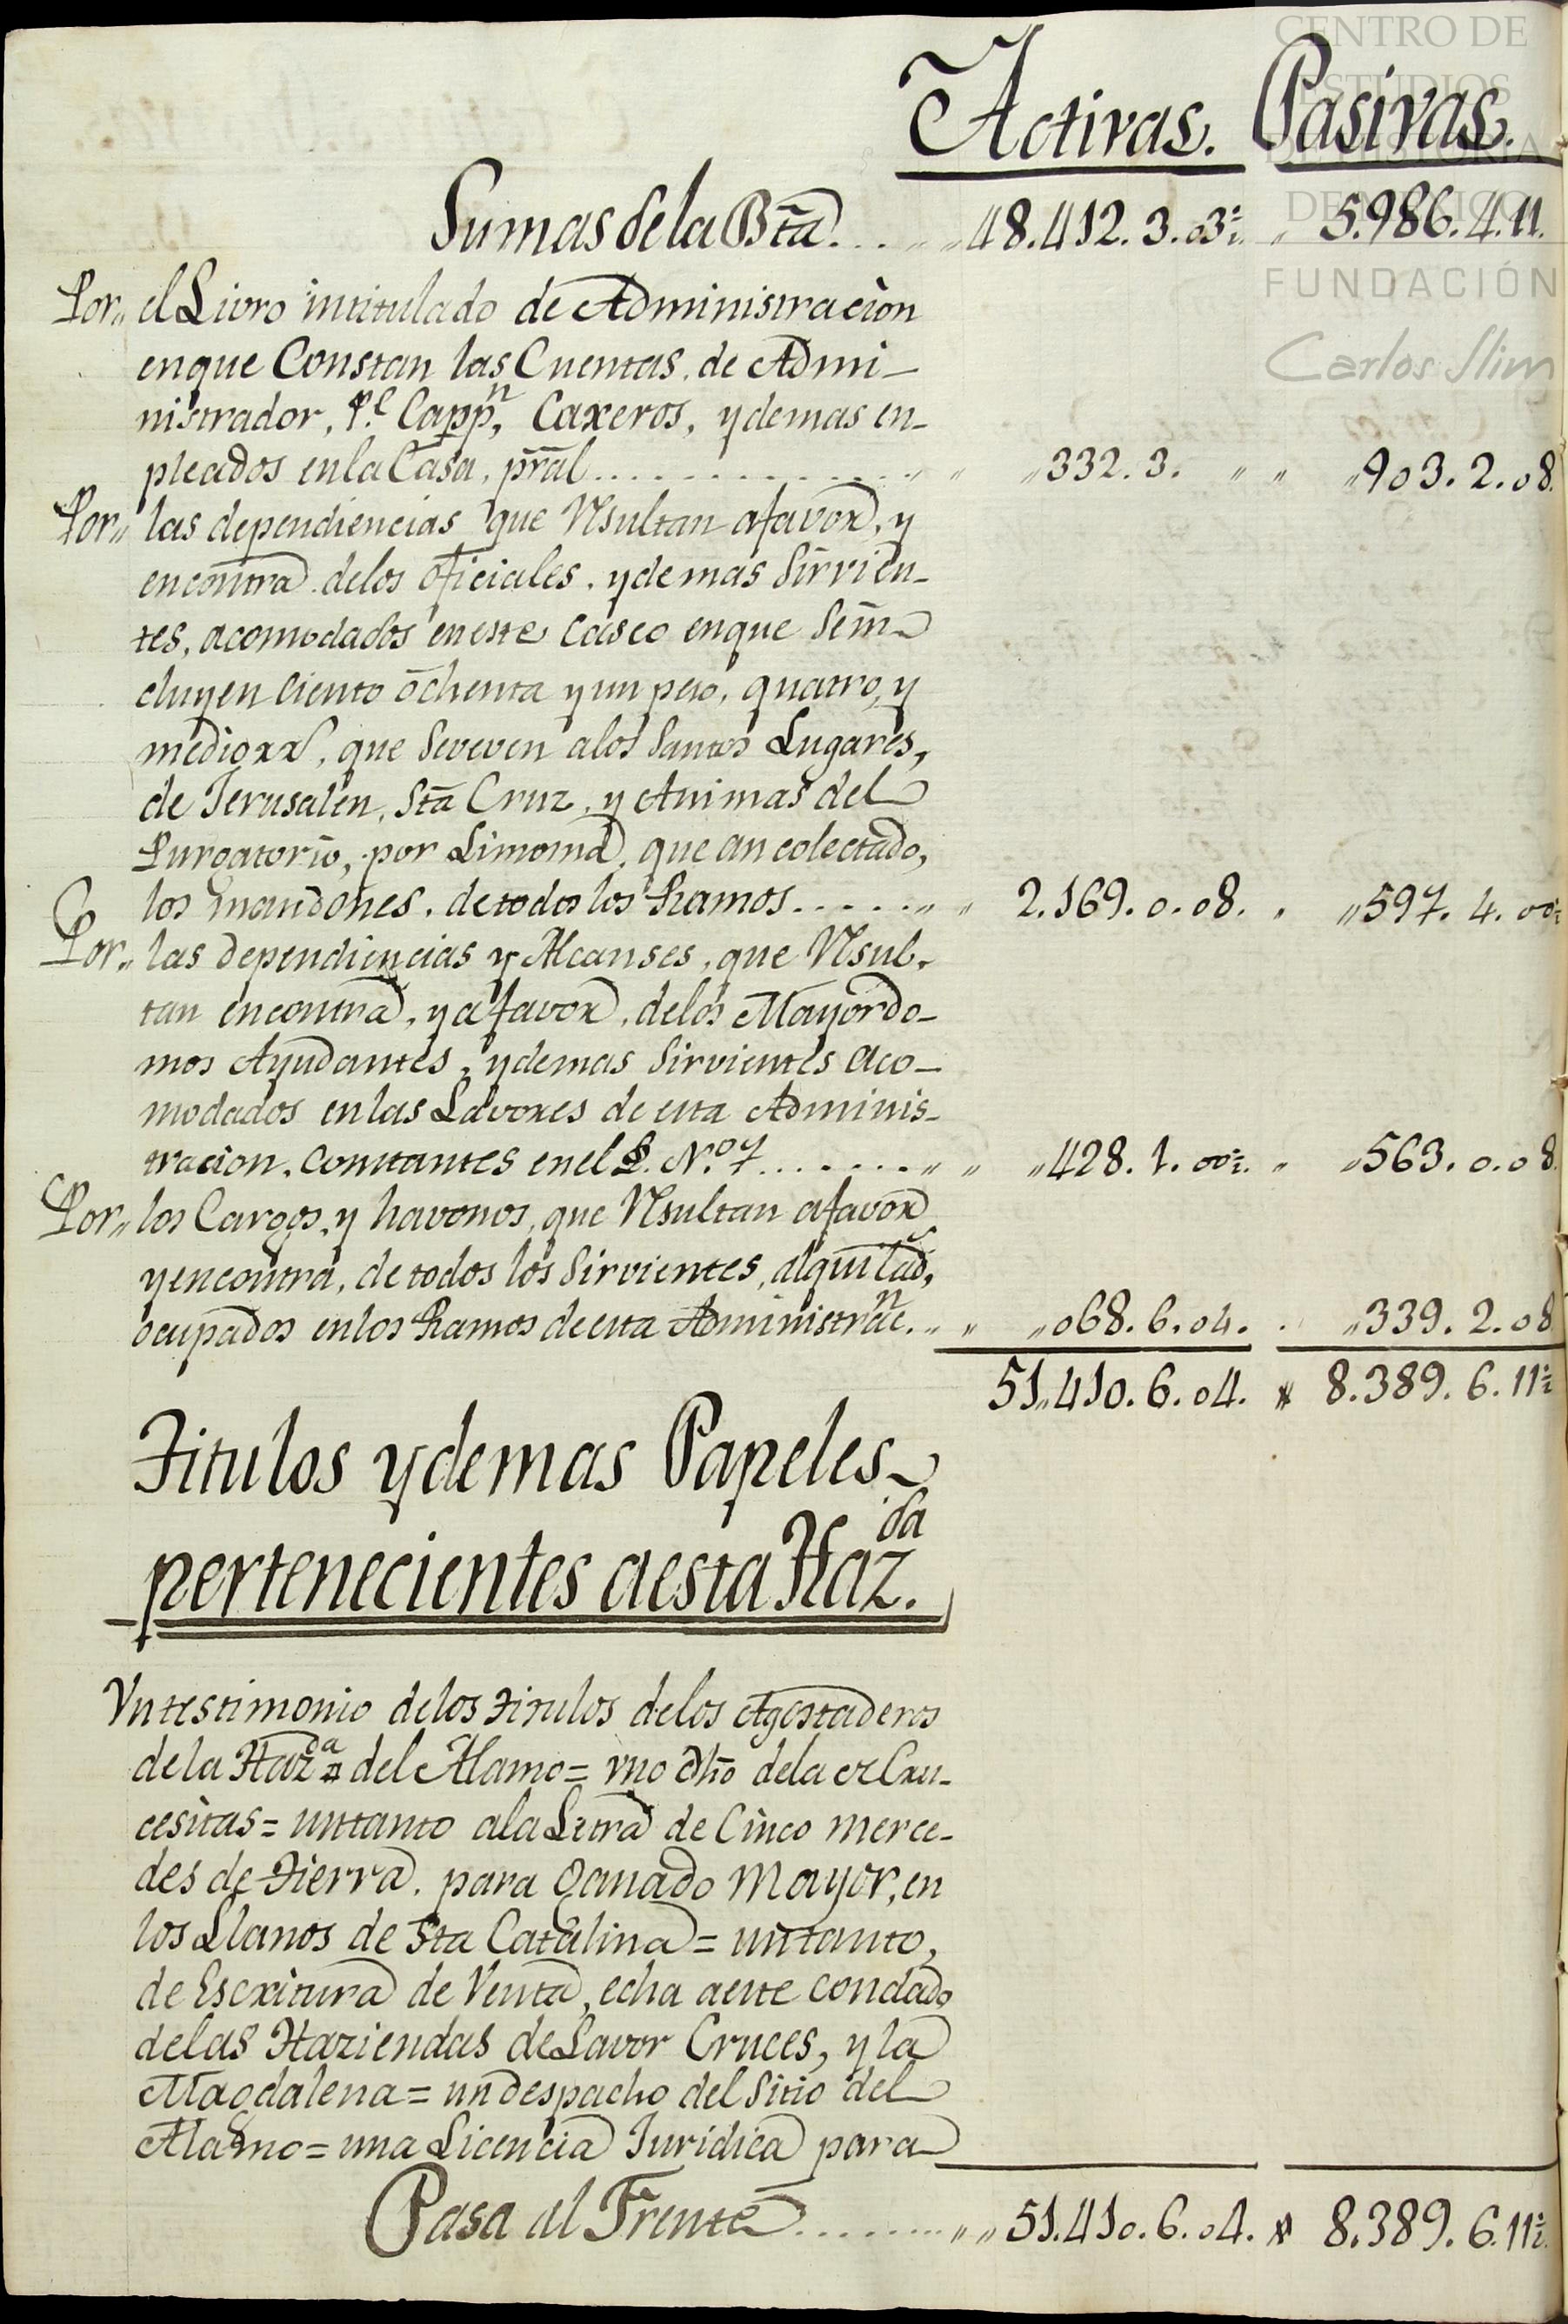 CENTRO DE
ESTUDIOS
DE HISTORIA
DE MÉXICO
FUNDACIÓN
Carlos Slim
Activas. Pasivas.
Sumas de la Bta. . . . 48.412.3.03½. 5.986.4.11.
Por,, el Livro intitulado de Administracion
enque Constan las Cuentas de Admi-
nistrador, Pe. Cappn, Caxeros, y demas en-
pleados enla Casa, pral. . . . . . . . . . . ,, ,, ,,332.3. ,, ,, ,,903.2.08.
Por,, las dependiencias que Rsultan afavor, y
encontra delos oficiales, y demas Sirvien-
tes, acomodados eneste Casco enque Sein-
cluyen ciento ochenta y un peso, quatro, y
medio xxs, que Seveven alos Santos Lugares,
de Jerusalen, Sta Cruz, y Animas del
Purgatorio, por Limosna, que an colectado,
los mandones, detodos los Ramos. . . . . ,, ,, 2.169.0.08. ,, ,,597.4.00½
Por,, las dependiencias y Alcanses, que Rsul-
tan encontra, y afavor, delos Mayordo-
mos Ayudantes, y demas Sirvientes aco-
modados enlas Lavores de esta Adminis-
tracion, constantes enel § No. 7. . . . . . . ,, ,, ,,428.1.00½. ,, ,,563.0.08.
Por,, los Cargos, y havonos, que Rsultan afavor
y encontra, de todos los Sirvientes, alquilads,
ocupados enlos Ramos de esta Administracn. ,, ,, ,,068.6.04. . ,,339.2.08
51,,410.6.04. * 8.389.6.11½
Titulos y demas Papeles
pertenecientes aesta Hazda.
Vn testimonio delos titulos delos Agostaderos
dela Hazda del Alamo = vno dho dela de Cru-
cesitas = untanto ala Letra de Cinco merce-
des de Tierra, para Ganado Mayor, en
los Llanos de Sta Catalina = untanto,
de Escritura de Venta, echa aeste condado
delas Haziendas de Lavor Cruces, y la
Magdalena = un despacho del Sitio del
Alamo = una Licencia Juridica para
Pasa al Frente. . . . . . . . ,, ,, 51.410.6.04. * 8.389.6.11½.